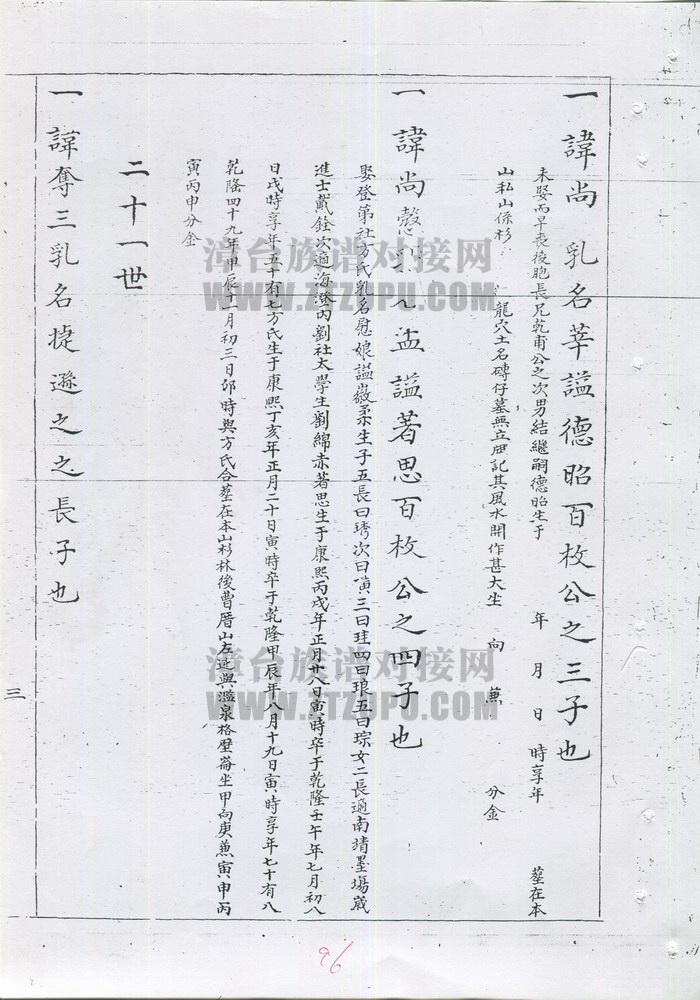 一諱尚乳名莘謚德昭百枚公之三子也
未娶而早喪後胞長兄乾甫公之次男結繼嗣德昭生于 年 月 日 時享年 塟在本
山私山係杉 龍穴土名磚仔墓無立碑記其風水開作甚大坐 向 兼 分金
一諱尚慤乳名盂謚著思百枚公之四子也
娶登第社方氏乳名慰娘謚徽柔生子五長曰琇次曰璜三曰珪四曰琅五曰琮女二長適南靖墨場歲
進士戴銓次適海澄內劉社太學生劉綿赤著思生于康熙丙戌年正月廿八日寅時卒于乾隆壬午年七月初八
日戌時享年五十有七方氏生于康熙丁亥年正月二十日寅時卒于乾隆甲辰年八月十九日寅時享年七十有八
乾隆四十九年甲辰十一月初三日卯時與方氏合塟在本山杉林後曹厝山左邊與濫泉格壁崙坐甲向庚兼寅申丙
寅丙申分金
二十一世
一諱奪三乳名捷遜之之長子也
三
96
漳台族谱对接网
WWW.ZTZUPU.COM
漳台族谱对接网
WWW.ZTZUPU.COM